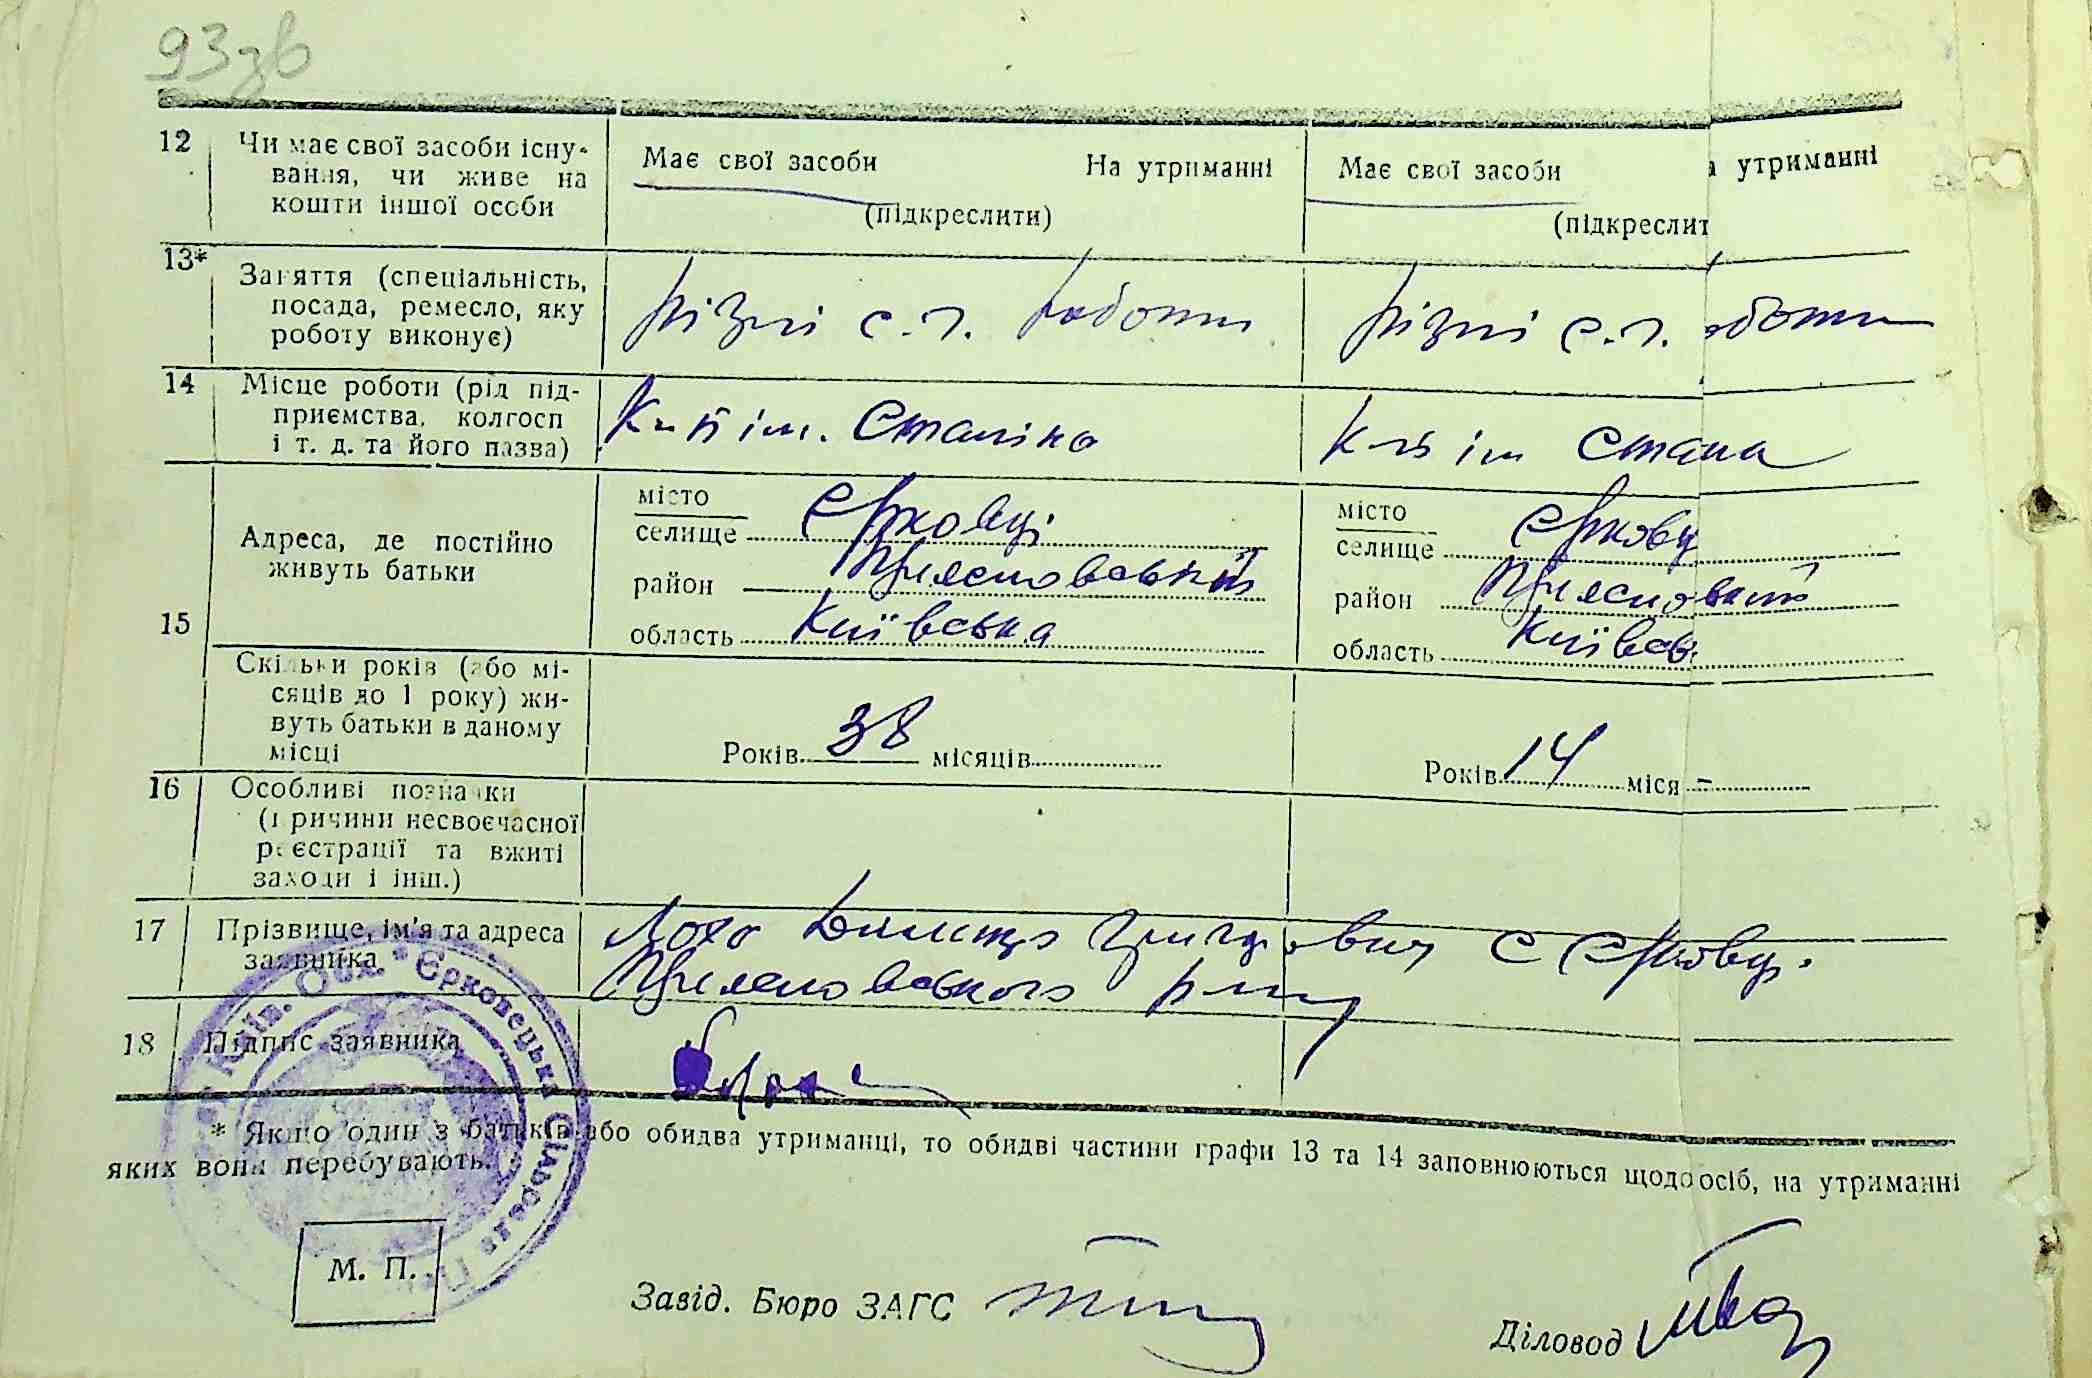 93зв
12 Чи має свої засоби існу- Має свої засоби На утриманні Має свої засоби а утриманні
вання, чи живе на
кошти іншої особи (підкреслити) (підкреслит
13* Заняття (спеціальність,
посада, ремесло, яку різні с.г. роботи різні с.г. оботи
роботу виконує)
14 Місце роботи (рід під-
приємства, колгосп К-п ім. Сталіна К-п ім Сталіна
і т. д. та його назва)
15 Адреса, де постійно
живуть батьки
місто місто
селище Єрковці селище Єрковц
район район
область Київська область Київськ
Скільки років (або мі-
сяців до 1 року) жи-
вуть батьки в даному
місці Років 38 місяців Років 14 міся -
16 Особливі позначки
(причини несвоєчасної
реєстрації та вжиті
заходи і інш.)
17 Прізвище, ім'я та адреса Григорович с Єрковці
заявника
18 Підпис заявника
Київ. Обл. * Єрковецька Сільська
* Якщо один з батьків або обидва утриманці, то обидві частини графи 13 та 14 заповнюються щодо осіб, на утриманні
яких вони перебувають.
М. П.
Завід. Бюро ЗАГС
Діловод